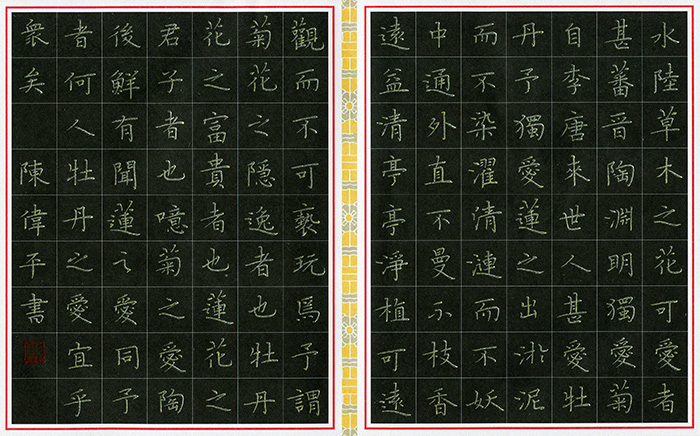 水陸草木之花可愛者
甚蕃晋陶淵明獨愛菊
自李唐來世人甚愛牡
丹予獨愛蓮之出淤泥
而不染濯清漣而不妖
中通外直不曼不枝香
遠益清亭亭淨植可遠
觀而不可褻玩焉予謂
菊花之隱逸者也牡丹
花之富貴者也蓮花之
君子者也憶菊之愛陶
後鮮有聞蓮之愛同予
者何人牡丹之愛宜乎
衆矣 陳偉平書